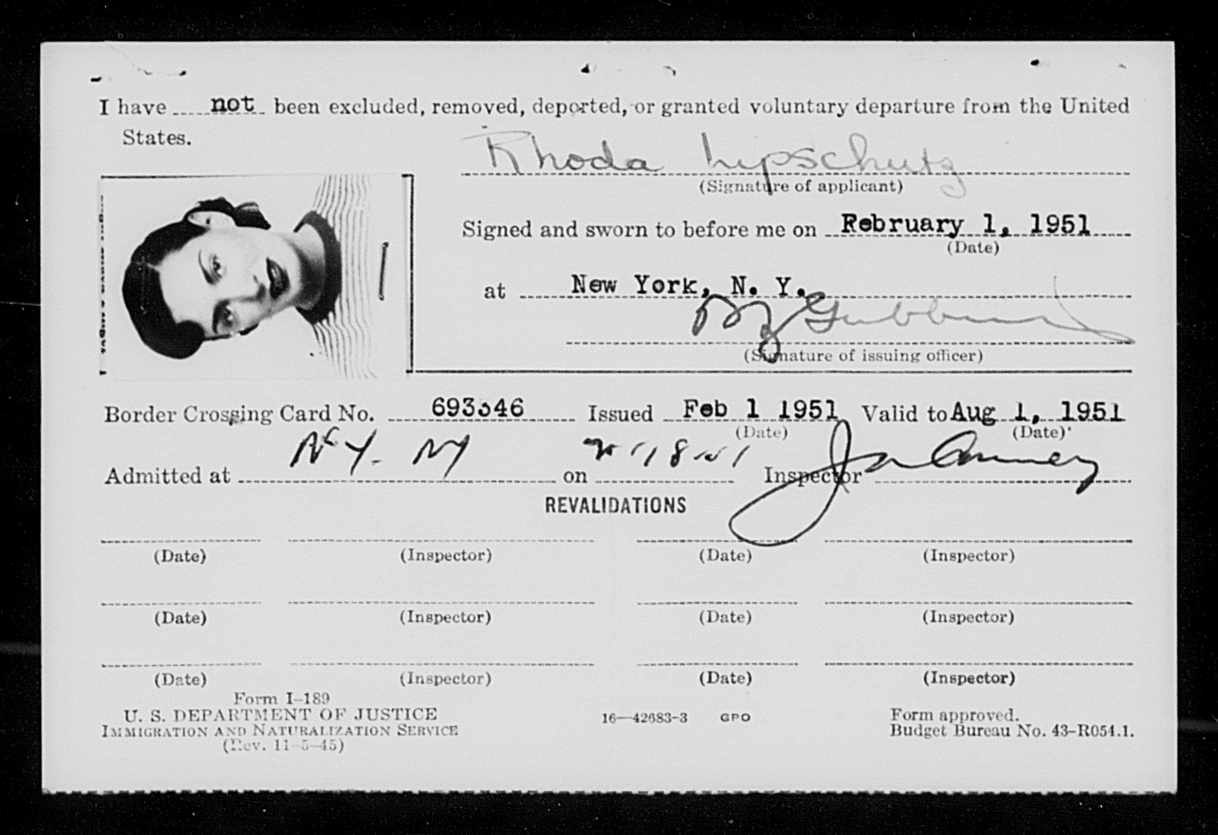 I have not been excluded, removed, deported, or granted voluntary departure from the United
States.
Rhoda Lipschutz
(Signature of applicant)
Signed and sworn to before me on February 1, 1951
(Date)
at New York, N. Y.
(Signature of issuing officer)
Border Crossing Card No. 693346 Issued Feb 1 1951 Valid to Aug 1, 1951
(Date) (Date)
Admitted at N.Y. NY on Inspector
REVALIDATIONS
(Date) (Inspector) (Date) (Inspector)
(Date) (Inspector) (Date) (Inspector)
(Date) (Inspector) (Date) (Inspector)
Form I-189
U. S. DEPARTMENT OF JUSTICE
IMMIGRATION AND NATURALIZATION SERVICE
(Rev. 11-5-45)
16—42683-3 GPO
Form approved.
Budget Bureau No. 43-R054.1.